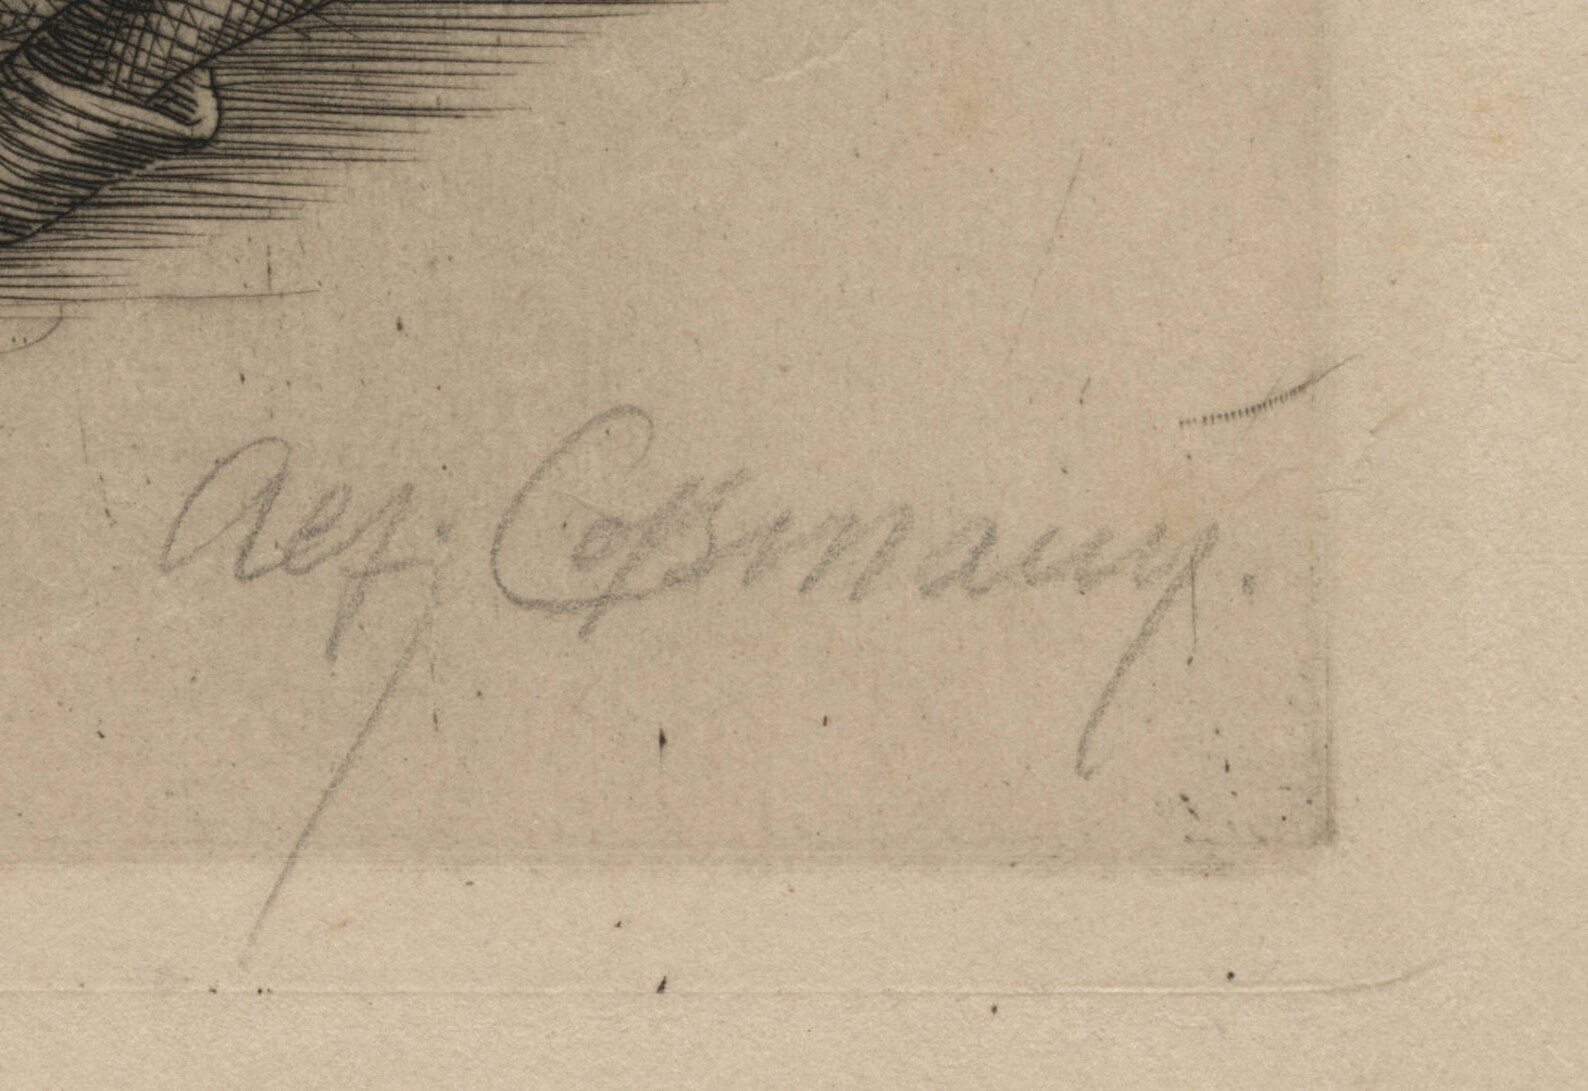 Alf. Coßmann.